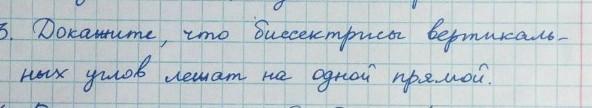 3. Докажите, что биссектрисы вертикаль-
ных углов лежат на одной прямой.